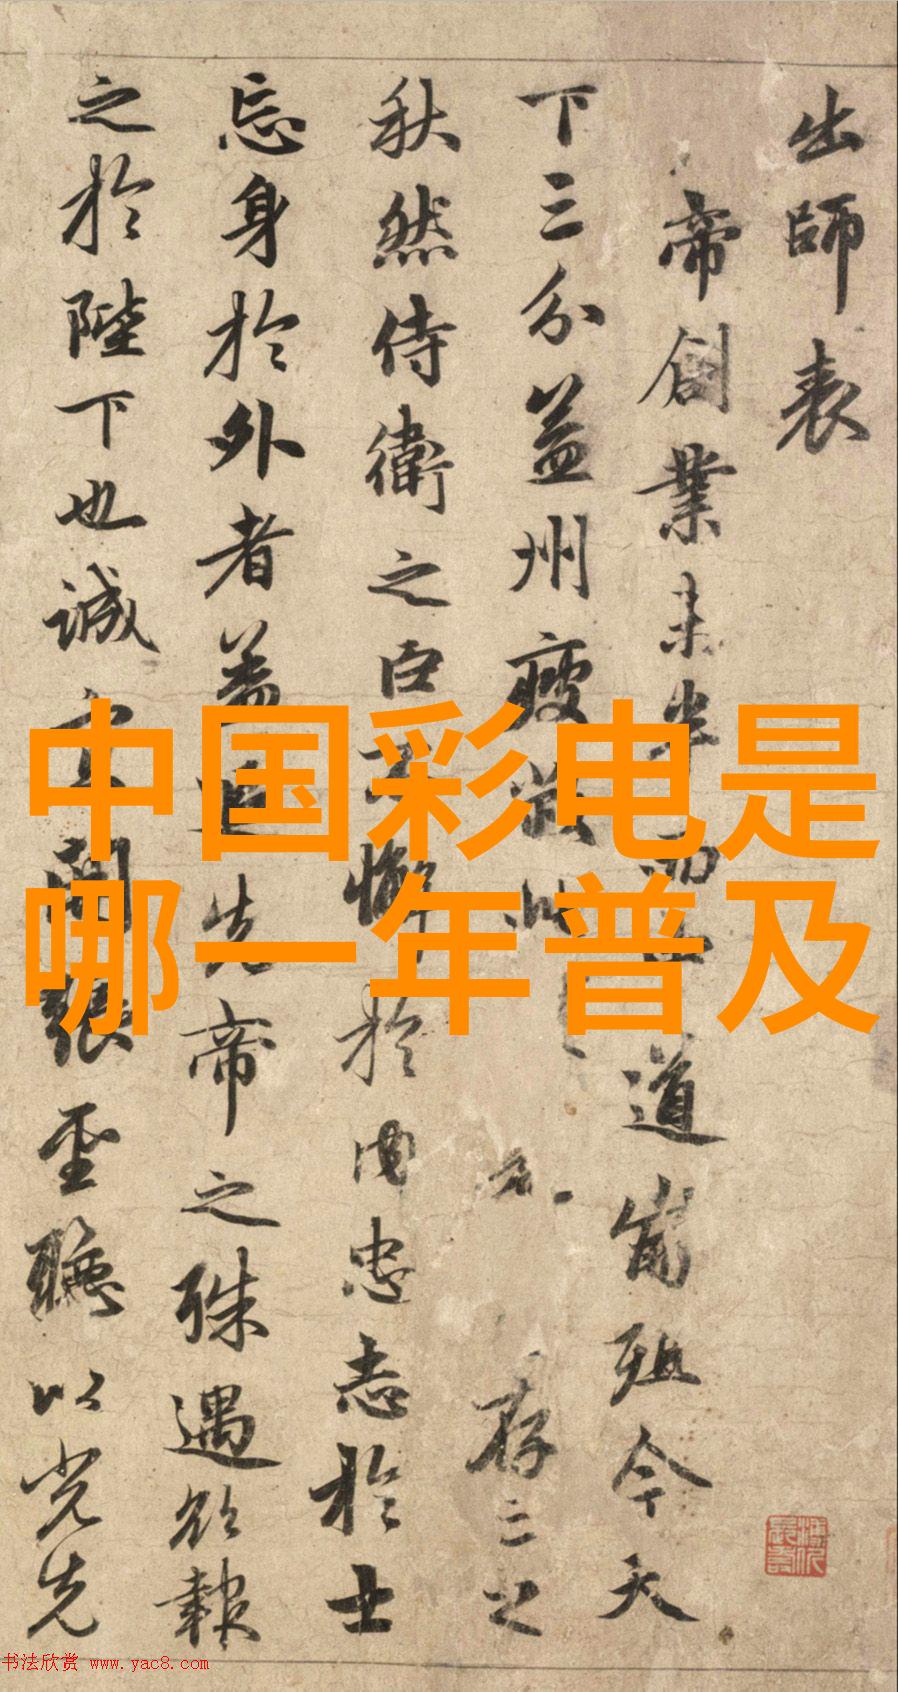 出師表
帝創業未半而
道崩殂今天
下三分益州疲
存亡之
秋然侍衛之臣不懈於内忠志於士
忘身於外者蓋追先帝之殊遇欲報
之於陛下也誠
張聖聽以光先
中国彩电是
哪一年普及
书法欣赏 www.yac8.com